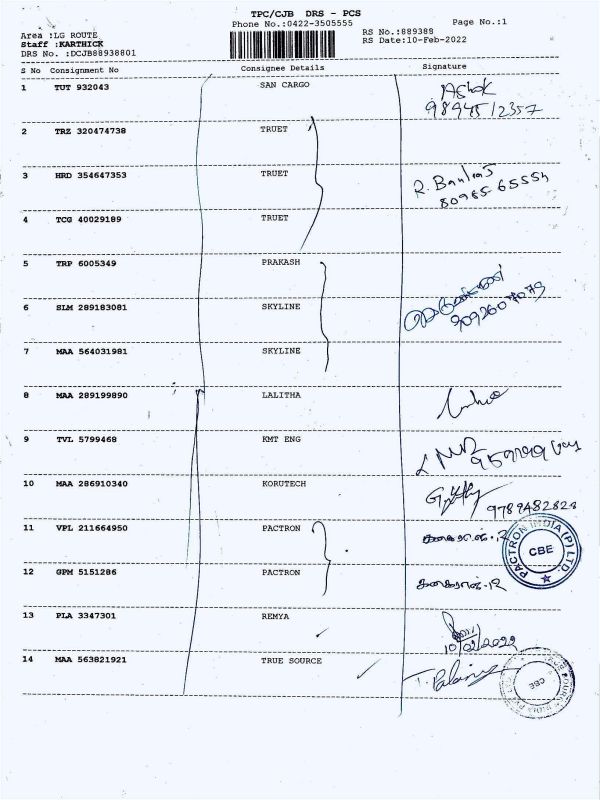 TPC/CJB DRS - PCS
Phone No.:0422-3505555
Page No.:1
Area :LG ROUTE
Staff :KARTHICK
DRS No. :DCJB88938801
RS No.:889388
RS Date:10-Feb-2022
S No Consignment No Consignee Details Signature
1 TUT 932043 SAN CARGO Ashok
9894512357
2 TRZ 320474738 TRUET
3 HRD 354647353 TRUET
80965 65554
4 TCG 40029189 TRUET
5 TRP 6005349 PRAKASH
6 SLM 289183081 SKYLINE
9092607079
7 MAA 564031981 SKYLINE
8 MAA 289199890 LALITHA
9 TVL 5799468 KMT ENG
10 MAA 286910340 KORUTECH
9789482828
11 VPL 211664950 PACTRON
PACTRON INDIA (P) LTD.
CBE
12 GPM 5151286 PACTRON
13 PLA 3347301 REMYA
10/02/2022
14 MAA 563821921 TRUE SOURCE
CBE